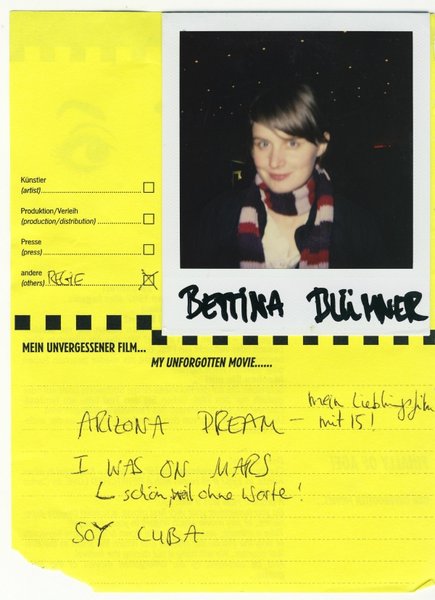 Künstler
(artist)
Produktion/Verleih
(production/distribution)
Presse
(press)
andere
(others) REGIE
BETTINA BLÜMNER
MEIN UNVERGESSENER FILM...
MY UNFORGOTTEN MOVIE......
ARIZONA DREAM – mein Lieblingsfilm
mit 15!
I WAS ON MARS
schön, weil ohne Worte!
SOY CUBA